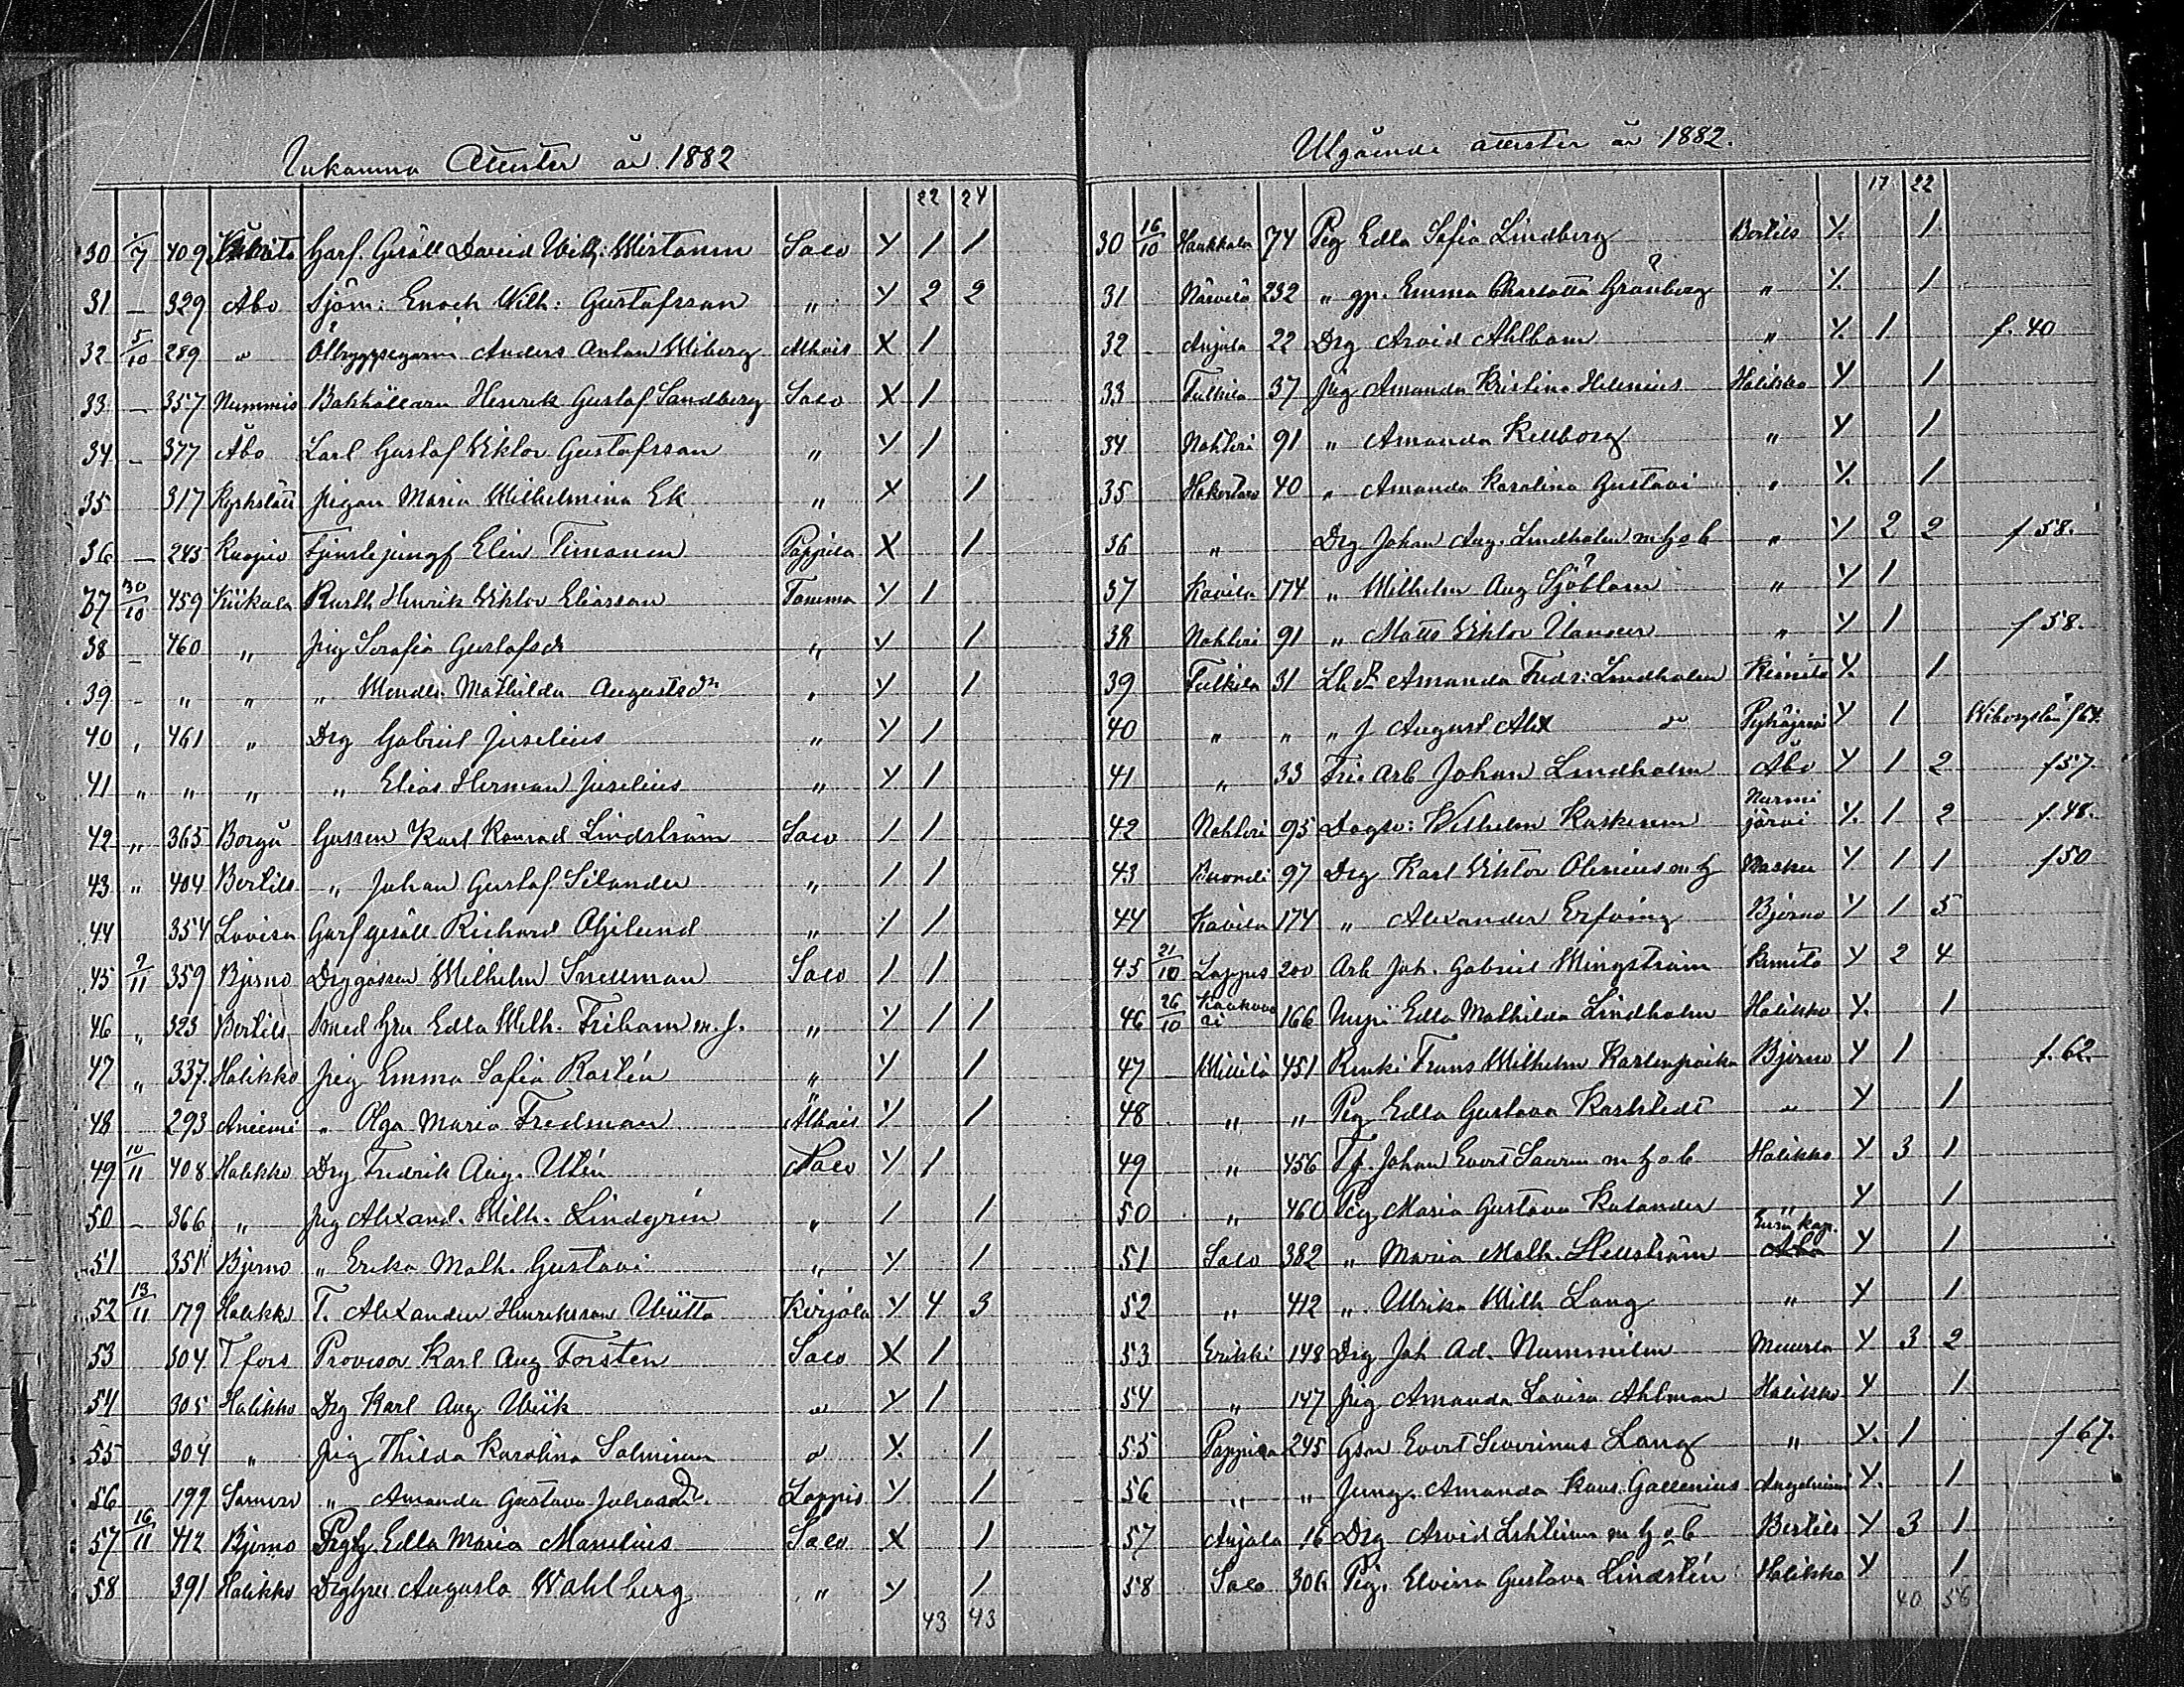 Inkomna Attester år 1882
22 24
30 1/7 409 Garf. Gesäll David Wilh. Wirtanen Salo Y 1 1
31 — 329 Åbo Sjöm: Enoch Wilh: Gustafsson „ Y 2 2
32 5/10 289 „ Ölbryggeegaren Anders Anton Wiberg Alhais X 1
33 — 357 Nummis Bokhållarn Henrik Gustaf Sandberg Salo X 1
34 — 377 Åbo Carl Gustaf Viktor Gustafsson „ Y 1
35 317 Kyrkslätt Pigan Maria Wilhelmina Ek „ X 1
36 — 243 Kuopio Tjenstejungf Elin Timonen Pappila X 1
37 30/10 459 Kiikala Rusth Henrik Viktor Eliasson Tamma Y 1
38 — 460 „ Pig Serafia Gustafsdr „ Y 1
39 - „ „ „ Wendla Mathilda Augustsdr „ Y 1
40 „ 461 „ Drg Gabriel Juselius „ Y 1
41 „ „ „ „ Elias Herman Juselius „ Y 1
42 „ 365 Borgå Gossen Karl Konrad Lindström Salo / 1
43 „ 404 Bertils „ Johan Gustaf Silander „ / 1
44 354 Lovisa Garfgesäll Richard Öhlund „ / 1
45 9/11 359 Bjerno Drggossen Wilhelm Snellman Salo / 1
46 „ 323 Bertils Smed hru Edla Wilh. Friham m. f. „ Y 1 1
47 „ 337. Halikko Pig Emma Sofia Rostén „ Y 1
48 293 „ Olga Maria Fredman Alhais Y 1
49 10/11 408 Halikko Drg Fredrik Aug. Utén Salo Y 1
50 - 366 „ Pig Alexand. Wilh. Lindgrén „ / 1
51 351 Bjerno „ Erika Math. Gustavi „ Y 1
52 13/11 179 Halikko T. Alexander Henriksson Uutta Kirjola Y 4 3
53 304 T fors Provisor Karl Aug Forsten Salo X 1
54 305 Halikko Drg Karl Aug Wiik „ Y 1
55 304 „ Pig Thilda Karolina Salminen „ Y. 1
56 199 Somero „ Amanda Gustava Johansdr. Lappis Y 1
57 16/11 412 Bjerno Edla Maria Manelius Salo X 1
58 391 Halikko Drghru Augusta Wahlberg „ Y 1
43 43
Utgående attester år 1882.
17 22
30 16/10 Haukkala 74 Pig Edla Sofia Lindberg Bertils Y. 1
31 232 „ gp. Emma Charlotta Grönberg „ Y. 1
32 Anjala 22 Drg Arvid Ahlbom „ Y. 1 f. 40
33 Tulkila 37 Pig Amanda Kristina Helenius Halikko Y 1
34 Nohteri 91 „ Amanda Kellborg „ Y 1
35 40 „ Amanda Karolina Gustavi „ Y. 1
36 „ Drg Johan Aug. Lindholm m h o b „ Y 2 2 f 58.
37 Kavila 174 „ Wilhelm Aug Sjöblom „ Y 1
38 Nohteri 91 „ Matts Viktor „ Y 1 f 58.
39 Tulkila 31 Lh dr Amanda Fredr: Lindholm Kimito Y. 1
40 „ „ „ J August Alex Pyhäjärvi Y 1 Wiborgs län f 64.
41 „ 33 Fri Arb Johan Lindholm Åbo Y 1 2 f 57
42 Nohteri 95 Dagsv: Wilhelm Koskinen Nurmi järvi Y. 1 2 f. 48.
43 97 Drg Karl Viktor Olenius m h Masku Y 1 1 f 50
44 Kavila 174 „ Alexander Erfving Bjerno Y 1 5
45 21/10 Lappis 200 Arb Joh. Gabriel Wingström Kimito Y 2 4
46 26/10 166 Edla Mathilda Lindholm Halikko Y. 1
47 451 Renki Frans Wilhelm Karlenpoika Bjerno Y 1 f. 62.
48 „ „ Pig Edla Gustava Karlstedt „ Y 1
49 „ 456 Tf. Johan Evert Saurén m h o b Halikko Y 3 1
50 „ 460 Pig Maria Gustava Kulander „ Y 1
51 Salo 382 „ Maria Math. Hellström Eura Kap. Åbo Y 1
52 „ 412 „ Ulrika Wilh Lang „ Y 1
53 Erikki 148 Drg Joh Ad. Nummilin Muurla Y 3 2
54 „ 147 Pig Amanda Lovisa Ahlman Halikko Y 1
55 Pappila 245 Gsn Evert Severinus Lang „ Y. 1 f 67.
56 „ „ Jungf. Amanda Gallenius Angelniemi Y. 1
57 Anjala 16 Drg Arvid Lehtinen m h o b Bertils Y 3 1
58 Salo 306 Pig. Elvira Gustava Lindstén Halikko Y 1
40 56